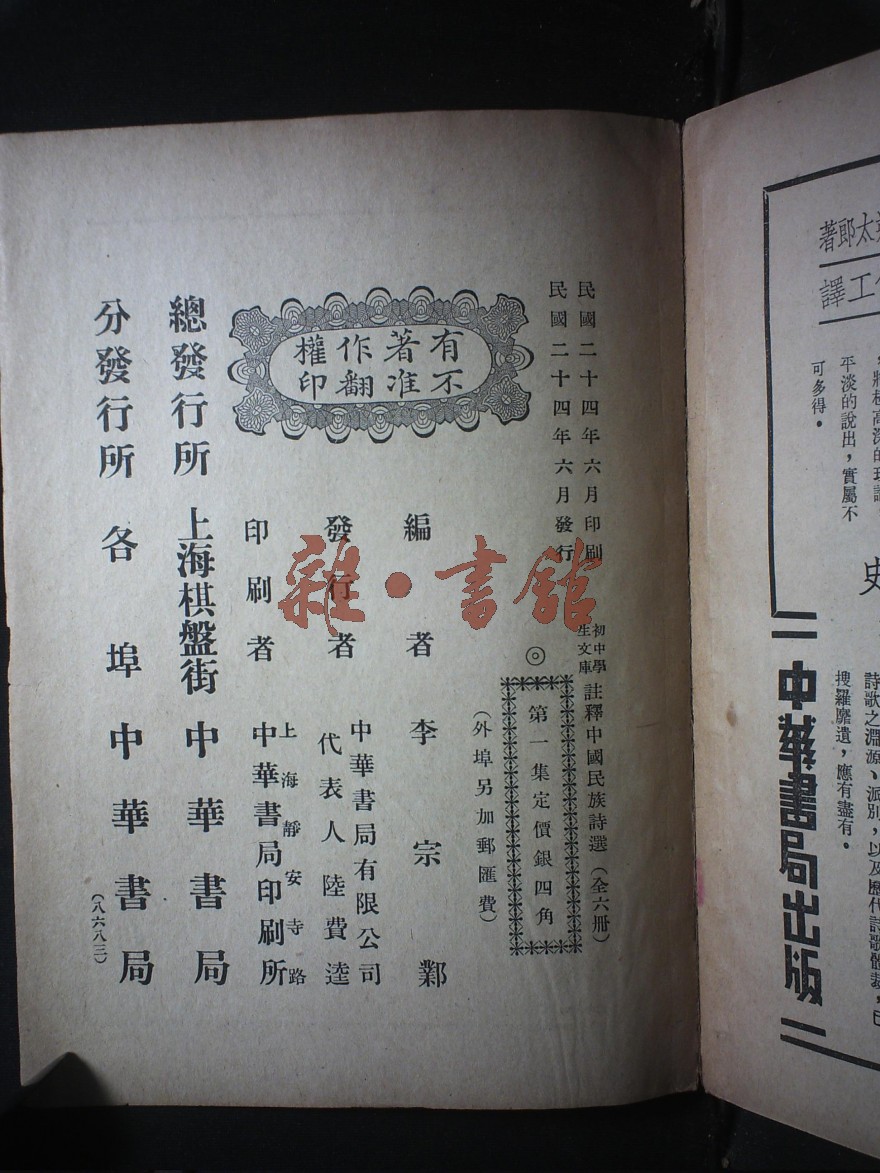 民國二十四年六月印刷
民國二十四年六月發行
初中學生文庫
註釋中國民族詩選(全六册)
◎
第一集定價銀四角
(外埠另加郵匯費)
有著作權
不准翻印
編者 李宗鄴
發行者 中華書局有限公司
代表人陸費逵
印刷者 上海靜安寺路
中華書局印刷所
總發行所 上海棋盤街 中華書局
分發行所 各埠 中華書局
(八六八三)
雜·書館
太郎著
工譯
平淡的說出,實屬不
可多得。
史
詩歌之淵源、派別,以及歷代詩歌體裁,
搜羅靡遺,應有盡有。
中華書局出版